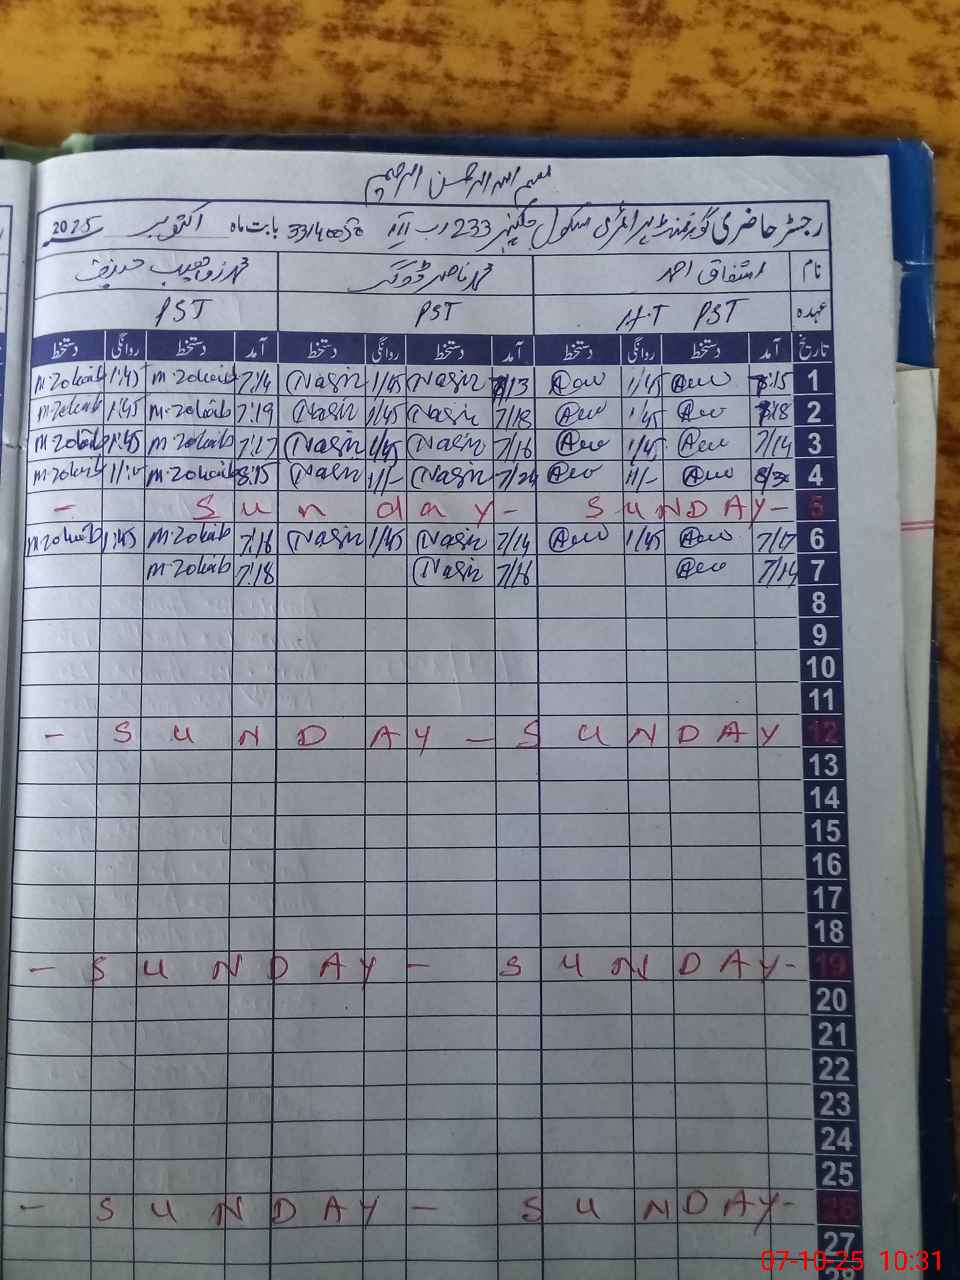 بسم اللہ الرحمن الرحیم
رجسٹر حاضری گورنمنٹ پرائمری سکول 233 رب II 33140050 بابت ماہ اکتوبر 2025
نام اشتفاق احمد محمد ناصر ڈوگر محمد زوہیب
عہدہ H.T PST PST PST
تاریخ آمد دستخط روانگی دستخط آمد دستخط روانگی دستخط آمد دستخط روانگی دستخط
1 :15 1/45 /13 Nasir 1/45 Nasir 7:14 m.zohaib 1:45 m.zohaib
2 :18 1/45 7/18 Nasir 1/45 Nasir 7:19 m.zohaib 1:45 m.zohaib
3 7/14 1/45 7/16 Nasir 1/45 Nasir 7:17 m.zohaib 1:45 m.zohaib
4 11/- 7/24 Nasir 11/- Nasir 8:15 m.zohaib m.zohaib
5 - Sunday - SUNDAY-
6 7/17 1/45 7/14 Nasir 1/45 Nasir 7:16 m.zohaib 1:45 m.zohaib
7 7/14 7/16 Nasir 7:18 m.zohaib
8
9
10
11
12 - SUNDAY - SUNDAY
13
14
15
16
17
18
19 - SUNDAY - SUNDAY-
20
21
22
23
24
25
26 - SUNDAY - SUNDAY-
27
28
07-10-25 10:31